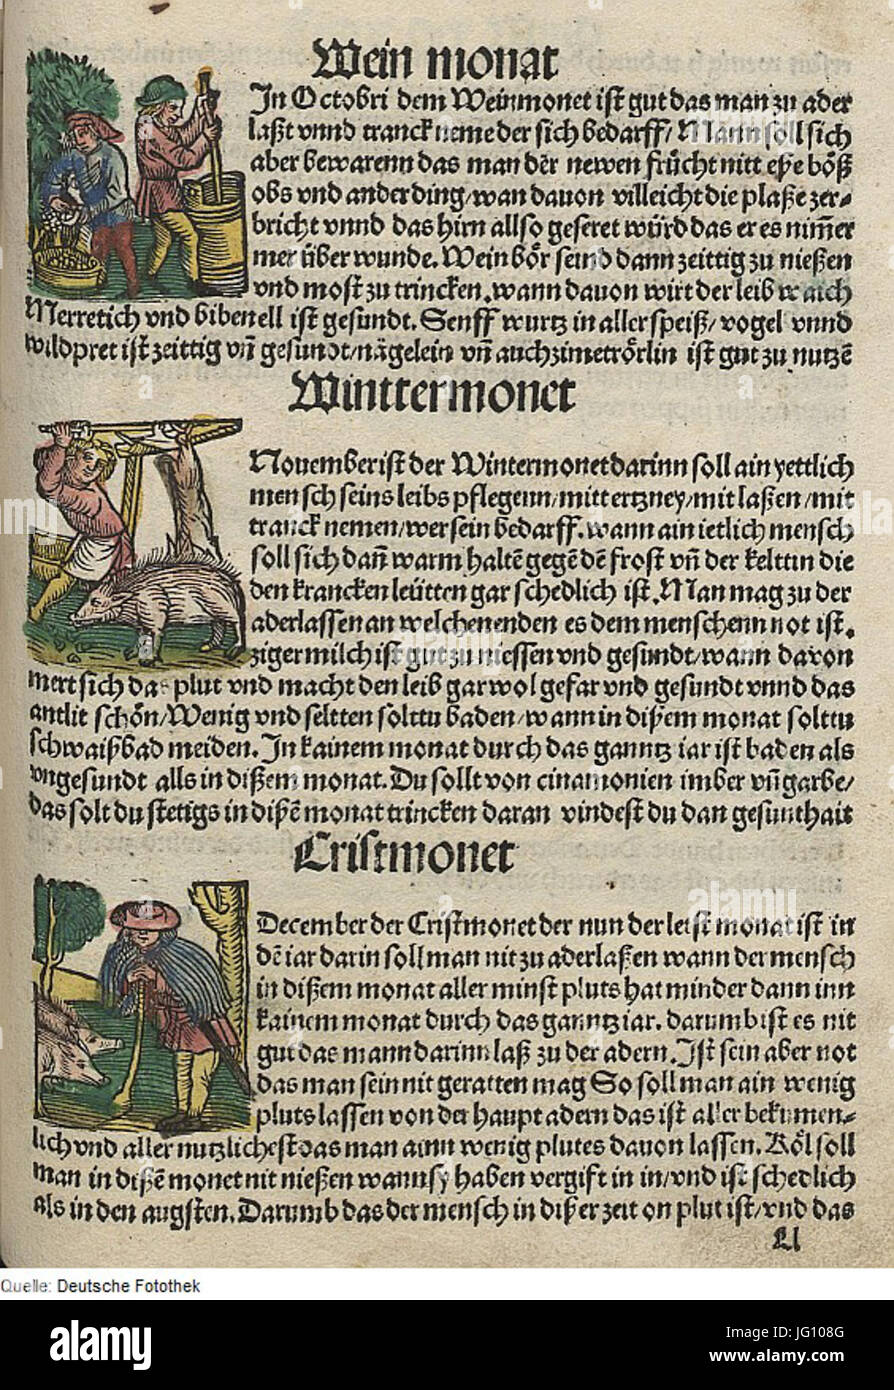 Wein monat
In Octobri dem Weinmonet ist gut das man zu ader
laßt vnnd tranck neme der sich bedarff/ Mann soll sich
aber bewarenn das man der newen frücht nitt eße böß
obs vnd ander ding/wan dauon villeicht die plaße zer-
bricht vnnd das hirn allso geseret würd das er es nim̄er
mer über wunde. Wein bör seind dann zeittig zu nießen
vnd most zu trincken.wann dauon wirt der leib waich
Merretich vnd bibenell ist gesundt. Senff wurtz in aller speiß/vogel vnnd
wildpret ist zeittig vn̄ gesundt/nägelein vn̄ auch zimetrörlin ist gut zu nutzē
Winttermonet
Nouember ist der Wintermonet darinn soll ain yettlich
mensch seins leibs pflegenn/mitt ertzney/mit laßen/mit
tranck nemen/wer sein bedarff.wann ain ietlich mensch
soll sich dan̄ warm haltē gegē dē frost vn̄ der keltin die
den krancken leütten gar schedlich ist. Man mag zu der
aderlassen an welchen enden es dem menschenn not ist.
ziger milch ist gut zu niessen vnd gesundt/wann dauon
mert sich das plut vnd macht den leib gar wol gefar vnd gesundt vnnd das
antlit schön/Wenig vnd seltten solttu baden/wann in dißem monat solttu
schwaißbad meiden. In kainem monat durch das ganntz iar ist baden als
vngesundt alls in dißem monat. Du sollt von cinamonien imber vn̄ garbe/
das solt du stetigs in dißē monat trincken daran vindest du dan gesunthait
Cristmonet
December der Cristmonet der nun der letst monat ist in
dē iar darin soll man nit zu aderlaßen wann der mensch
in dißem monat aller minst pluts hat minder dann inn
kainem monat durch das ganntz iar. darumb ist es nit
gut das mann darinn laß zu der adern. Ist sein aber not
das man sein nit geratten mag So soll man ain wenig
pluts lassen von der haupt adern das ist aller bekumen-
lich vnd aller nutzlichest das man ainn wenig plutes dauon lassen. Köl soll
man in dißē monet nit nießen wann sy haben vergift in in/vnd ist schedlich
als in den augsten. Darumb das der mensch in dißer zeit on plut ist/vnd das
Ll
Quelle: Deutsche Fotothek
alamy
Image ID: JG108G
www.alamy.com